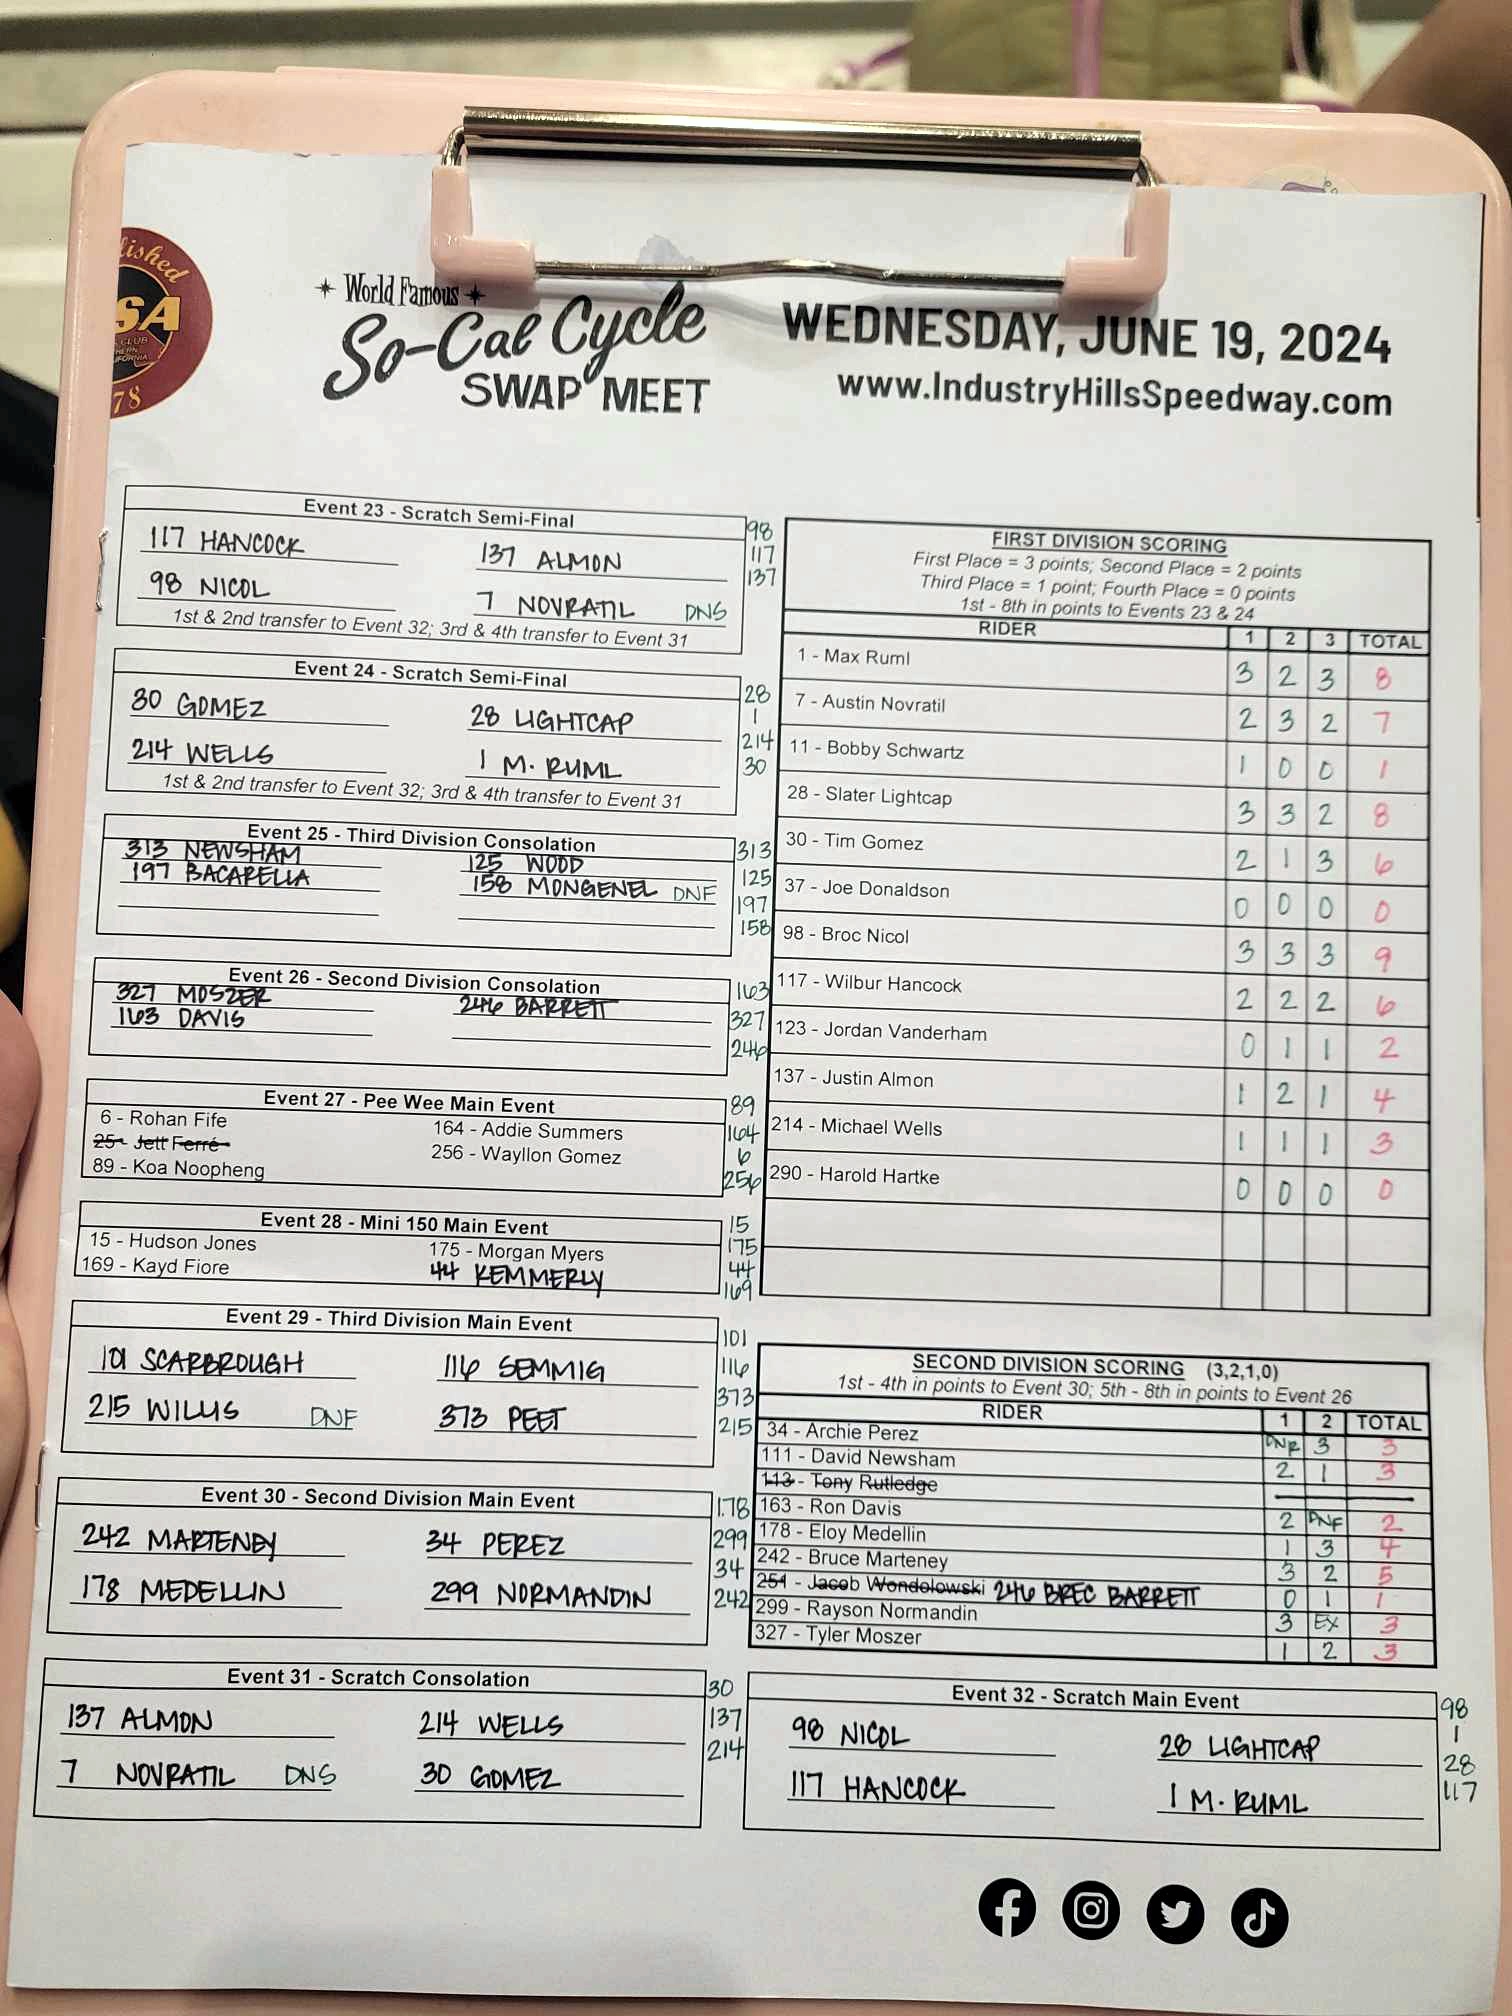 lished
SA
CLUB
78
World Famous
So-Cal Cycle
SWAP MEET
WEDNESDAY, JUNE 19, 2024
www.IndustryHillsSpeedway.com
Event 23 - Scratch Semi-Final
117 HANCOCK 137 ALMON
98 NICOL 7 NOVRATIL DNS
1st & 2nd transfer to Event 32; 3rd & 4th transfer to Event 31
98
117
137
Event 24 - Scratch Semi-Final
30 GOMEZ 28 LIGHTCAP
214 WELLS 1 M. RUML
1st & 2nd transfer to Event 32; 3rd & 4th transfer to Event 31
28
1
214
30
Event 25 - Third Division Consolation
313 NEWSHAM 125 WOOD
197 BACARELLA 158 MONGENEL DNF
313
125
197
158
Event 26 - Second Division Consolation
327 MOSZER 246 BARRETT
163 DAVIS
163
327
246
Event 27 - Pee Wee Main Event
6 - Rohan Fife 164 - Addie Summers
25 - Jett Ferré 256 - Wayllon Gomez
89 - Koa Noopheng
89
164
6
256
Event 28 - Mini 150 Main Event
15 - Hudson Jones 175 - Morgan Myers
169 - Kayd Fiore 44 KEMMERLY
15
175
44
169
Event 29 - Third Division Main Event
101 SCARBROUGH 116 SEMMIG
215 WILLIS DNF 373 PEET
101
116
373
215
Event 30 - Second Division Main Event
242 MARTENEY 34 PEREZ
178 MEDELLIN 299 NORMANDIN
178
299
34
242
Event 31 - Scratch Consolation
137 ALMON 214 WELLS
7 NOVRATIL DNS 30 GOMEZ
30
137
214
FIRST DIVISION SCORING
First Place = 3 points; Second Place = 2 points
Third Place = 1 point; Fourth Place = 0 points
1st - 8th in points to Events 23 & 24
RIDER 1 2 3 TOTAL
1 - Max Ruml 3 2 3 8
7 - Austin Novratil 2 3 2 7
11 - Bobby Schwartz 1 0 0 1
28 - Slater Lightcap 3 3 2 8
30 - Tim Gomez 2 1 3 6
37 - Joe Donaldson 0 0 0 0
98 - Broc Nicol 3 3 3 9
117 - Wilbur Hancock 2 2 2 6
123 - Jordan Vanderham 0 1 1 2
137 - Justin Almon 1 2 1 4
214 - Michael Wells 1 1 1 3
290 - Harold Hartke 0 0 0 0
SECOND DIVISION SCORING (3,2,1,0)
1st - 4th in points to Event 30; 5th - 8th in points to Event 26
RIDER 1 2 TOTAL
34 - Archie Perez DNR 3 3
111 - David Newsham 2 1 3
113 - Tony Rutledge
163 - Ron Davis 2 DNF 2
178 - Eloy Medellin 1 3 4
242 - Bruce Marteney 3 2 5
251 - Jacob Wondolowski 246 BREC BARRETT 0 1 1
299 - Rayson Normandin 3 EX 3
327 - Tyler Moszer 1 2 3
Event 32 - Scratch Main Event
98 NICOL 28 LIGHTCAP
117 HANCOCK 1 M. RUML
98
1
28
117